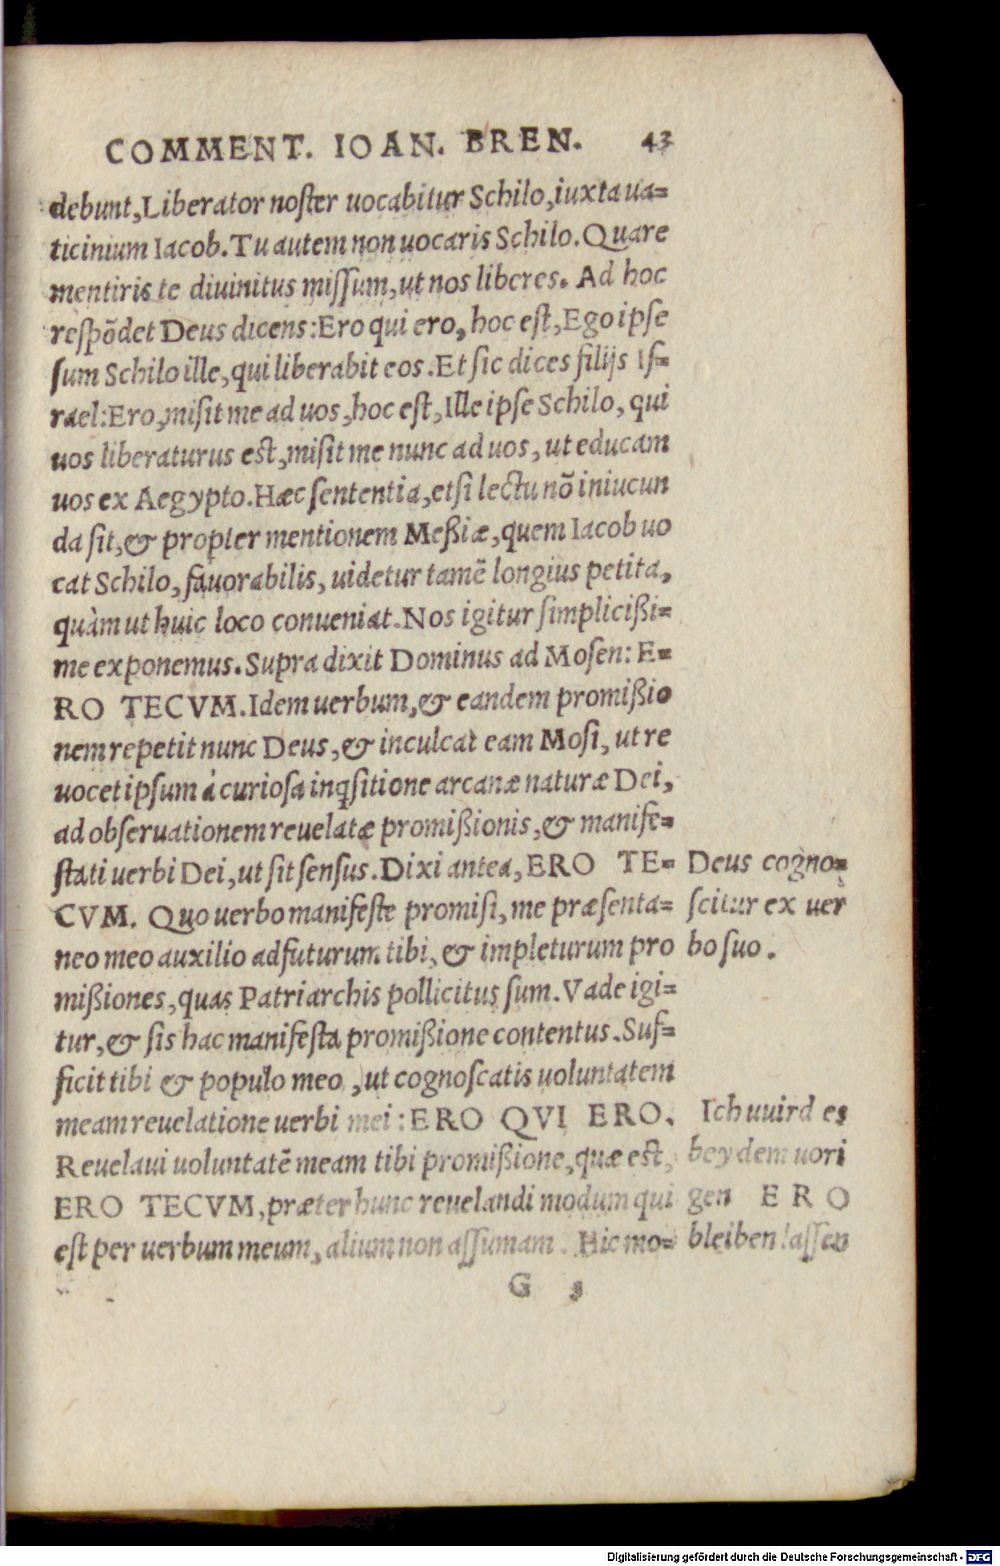 COMMENT. IOAN. BREN. 43
debunt, Liberator noster uocabitur Schilo, iuxta ua=
ticinium Iacob. Tu autem non uocaris Schilo. Quare
mentiris te diuinitus missum, ut nos liberes. Ad hoc
respōdet Deus dicens: Ero qui ero, hoc est, Ego ipse
sum Schilo ille, qui liberabit eos. Et sic dices filijs Is=
rael: Ero, misit me ad uos, hoc est, Ille ipse Schilo, qui
uos liberaturus est, misit me nunc ad uos, ut educam
uos ex Aegypto. Hæc sententia, etsi lectu nō iniucun
da sit, & propter mentionem Meßiæ, quem Iacob uo
cat Schilo, fauorabilis, uidetur tamē longius petita,
quàm ut huic loco conueniat. Nos igitur simplicißi=
me exponemus. Supra dixit Dominus ad Mosen: E=
RO TECVM. Idem uerbum, & eandem promißio
nem repetit nunc Deus, & inculcat eam Mosi, ut re
uocet ipsum à curiosa inqsitione arcanæ naturæ Dei,
ad obseruationem reuelatæ promißionis, & manife=
stati uerbi Dei, ut sit sensus. Dixi antea, ERO TE=
CVM. Quo uerbo manifeste promisi, me præsenta=
neo meo auxilio adfuturum tibi, & impleturum pro
mißiones, quas Patriarchis pollicitus sum. Vade igi=
tur, & sis hac manifesta promißione contentus. Suf=
ficit tibi & populo meo, ut cognoscatis uoluntatem
meam reuelatione uerbi mei: ERO QVI ERO.
Reuelaui uoluntatē meam tibi promißione, quæ est,
ERO TECVM, præter hunc reuelandi modum qui
est per uerbum meum, alium non assumam. Hic mo=
Deus cogno=
scitur ex uer
bo suo.
Ich uuird es
bey dem uori
gen ERO
bleiben lassen
G 3
Digitalisierung gefördert durch die Deutsche Forschungsgemeinschaft - DFG